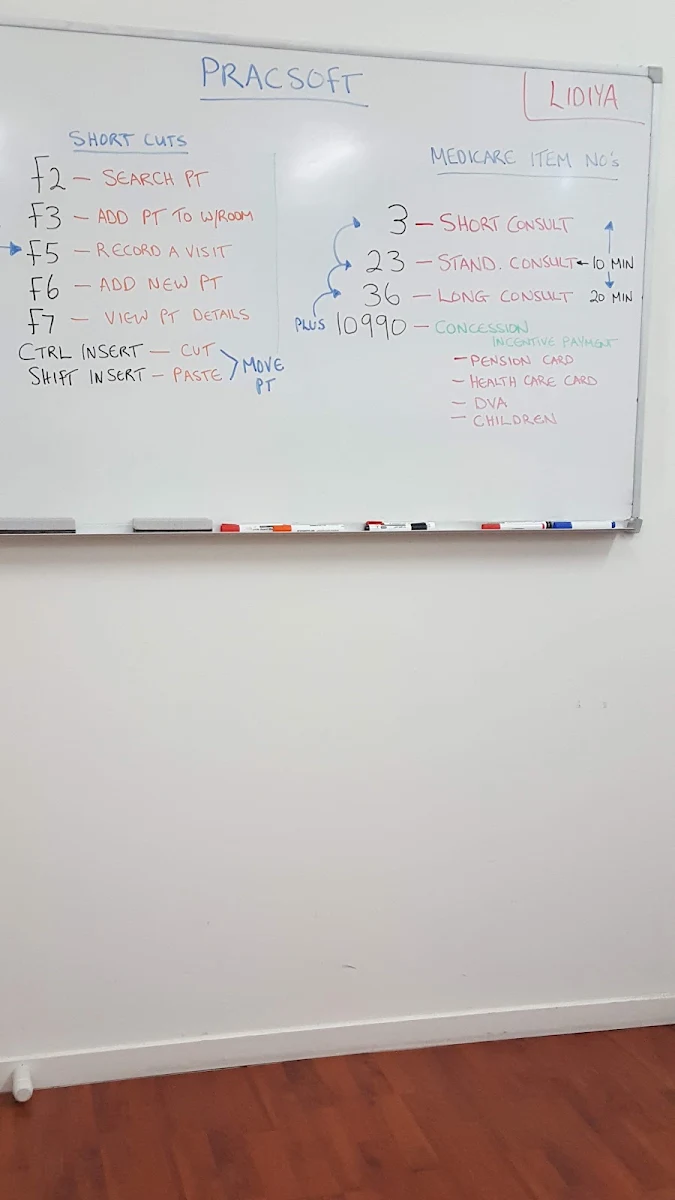 PRACSOFT
LIDIYA
SHORT CUTS
F2 — SEARCH PT
F3 — ADD PT TO W/ROOM
F5 — RECORD A VISIT
F6 — ADD NEW PT
F7 — VIEW PT DETAILS
CTRL INSERT — CUT
SHIFT INSERT — PASTE
MOVE
PT
MEDICARE ITEM NO's
3 — SHORT CONSULT
23 — STAND. CONSULT ← 10 MIN
36 — LONG CONSULT 20 MIN
PLUS 10990 — CONCESSION
INCENTIVE PAYMENT
— PENSION CARD
— HEALTH CARE CARD
— DVA
— CHILDREN